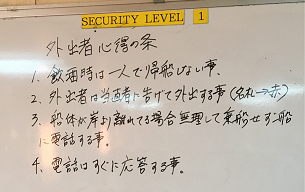 SECURITY LEVEL 1
外出者心得の条
1. 飲酒時は一人で帰船しない事.
2. 外出者は当直者に告げて外出する事(名札→赤)
3. 船体が岸より離れてる場合無理して乗船せず船
に電話する事.
4. 電話はすぐに応答する事.